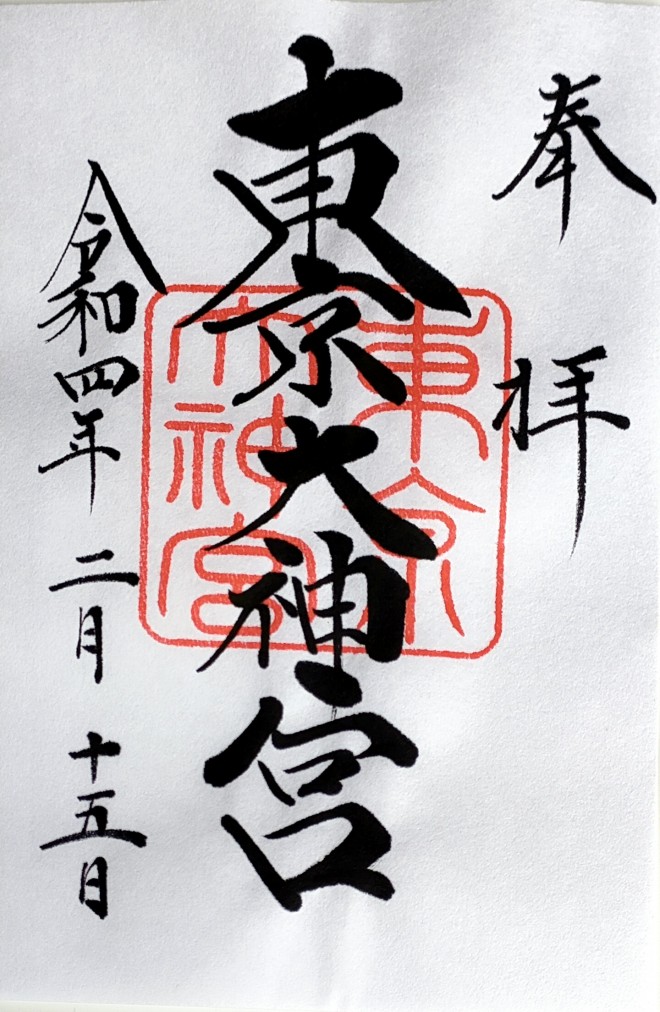 奉拝
東京大神宮
東京
大神宮
令和四年二月十五日